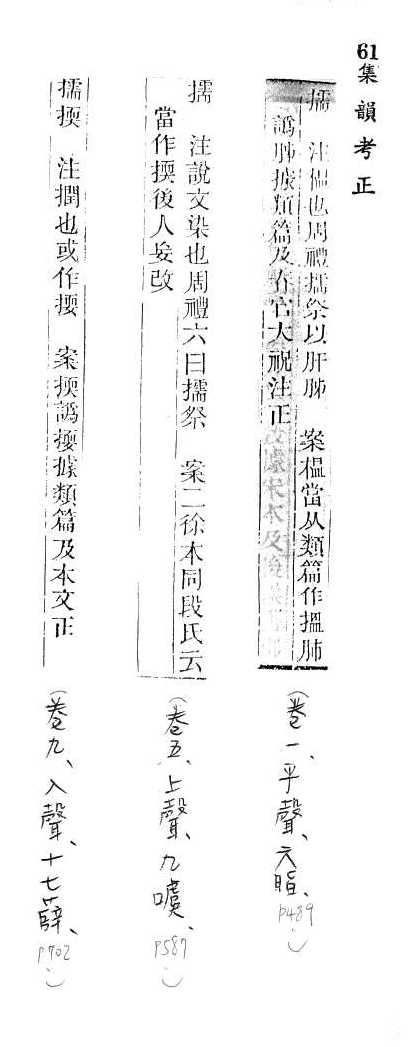 61集韻考正
擩　注揾也周禮擩祭以肝肺　案榅當从類篇作搵肺
譌肺據類篇及春官大祝注正
（卷一、平聲、六脂、P489）
擩　注說文染也周禮六曰擩祭　案二徐本同段氏云
當作㨎後人妄改
（卷五、上聲、九噳、P587）
擩㨎　注搁也或作㨎　案㨎譌㨎據類篇及本文正
（卷九、入聲、十七薛、P702）